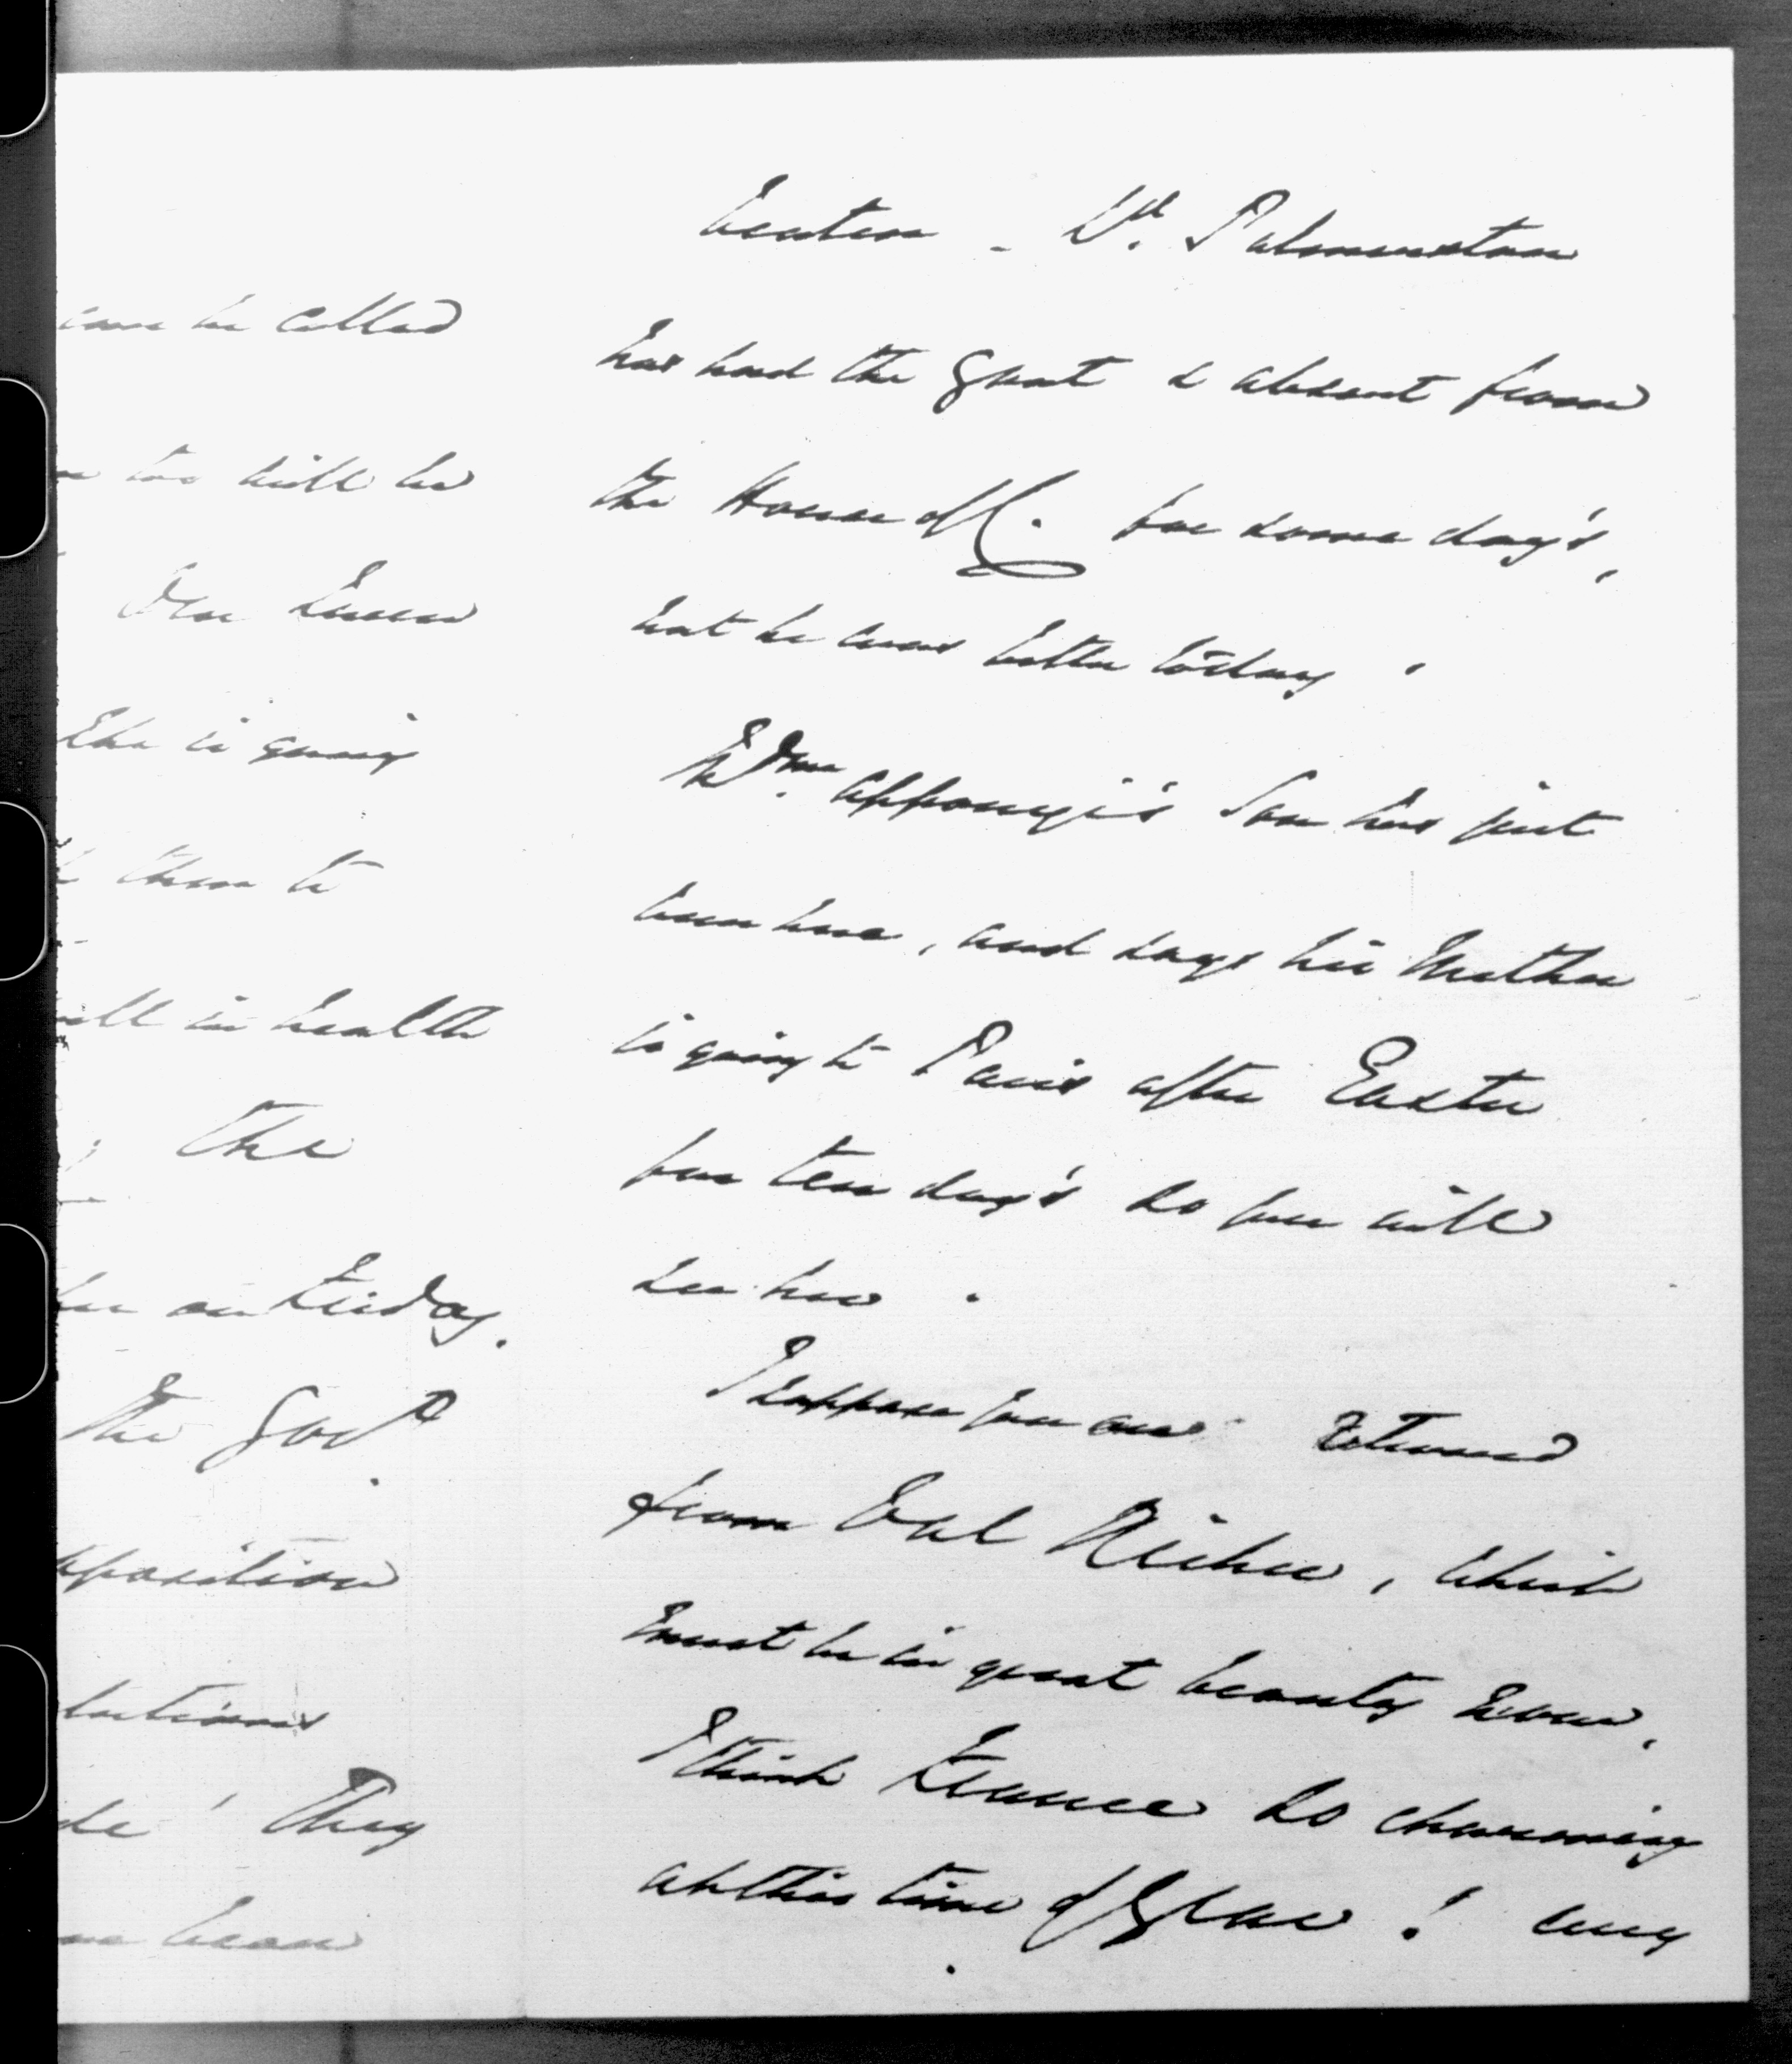 can be called
too will be
One knew
She is going
them to
ill in health
the
on Friday.
the Govt.
opposition
They
been
beaten - Ld. Palmerston
has had the Gout & absent from
the House of C. for some day's,
but he was better to day.
Mdme. Apponyi's Son has just
been here, and says his Mother
is going to Paris after Easter
for ten day's so you will
see her.
I suppose you are returned
from Val Richer, which
must be in great beauty now.
I think France so charming
at this time of year! any